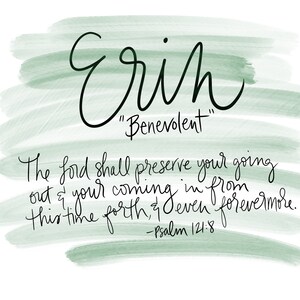 Erin
"Benevolent"
The Lord shall preserve your going
out & your coming in from
this time forth, & even forevermore.
-Psalm 121:8